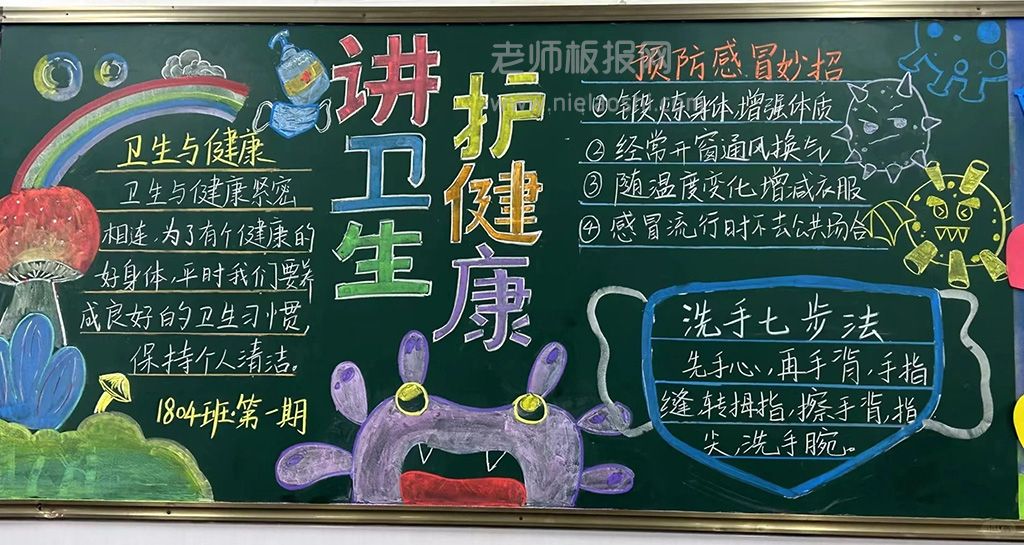 讲卫生
护健康
卫生与健康
卫生与健康紧密
相连,为了有个健康的
好身体,平时我们要养
成良好的卫生习惯,
保持个人清洁。
1804班·第一期
预防感冒妙招
①锻炼身体,增强体质
②经常开窗通风换气
③随温度变化,增减衣服
④感冒流行时不去公共场合
洗手七步法
先手心,再手背,手指
缝,转拇指,擦手背,指
尖,洗手腕。
老师板报网